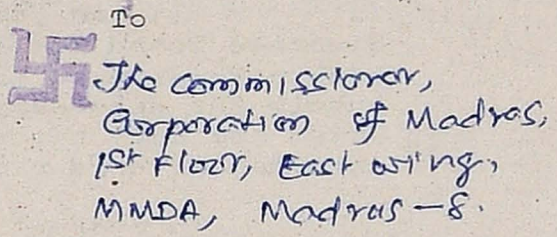 To
The Commissioner,
Corporation of Madras,
1st Floor, East wing,
MMDA, Madras - 8.